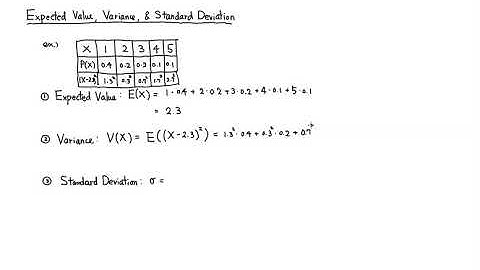 Expected Value, Variance, & Standard Deviation
ex.)
X 1 2 3 4 5
P(X) 0.4 0.2 0.2 0.1 0.1
(X-2.3)² 1.3² 0.3² 0.7² 1.7² 2.7²
① Expected Value: E(X) = 1·0.4 + 2·0.2 + 3·0.2 + 4·0.1 + 5·0.1
= 2.3
② Variance: V(X) = E((X-2.3)²) = 1.3²·0.4 + 0.3²·0.2 + 0.7²
③ Standard Deviation: σ =